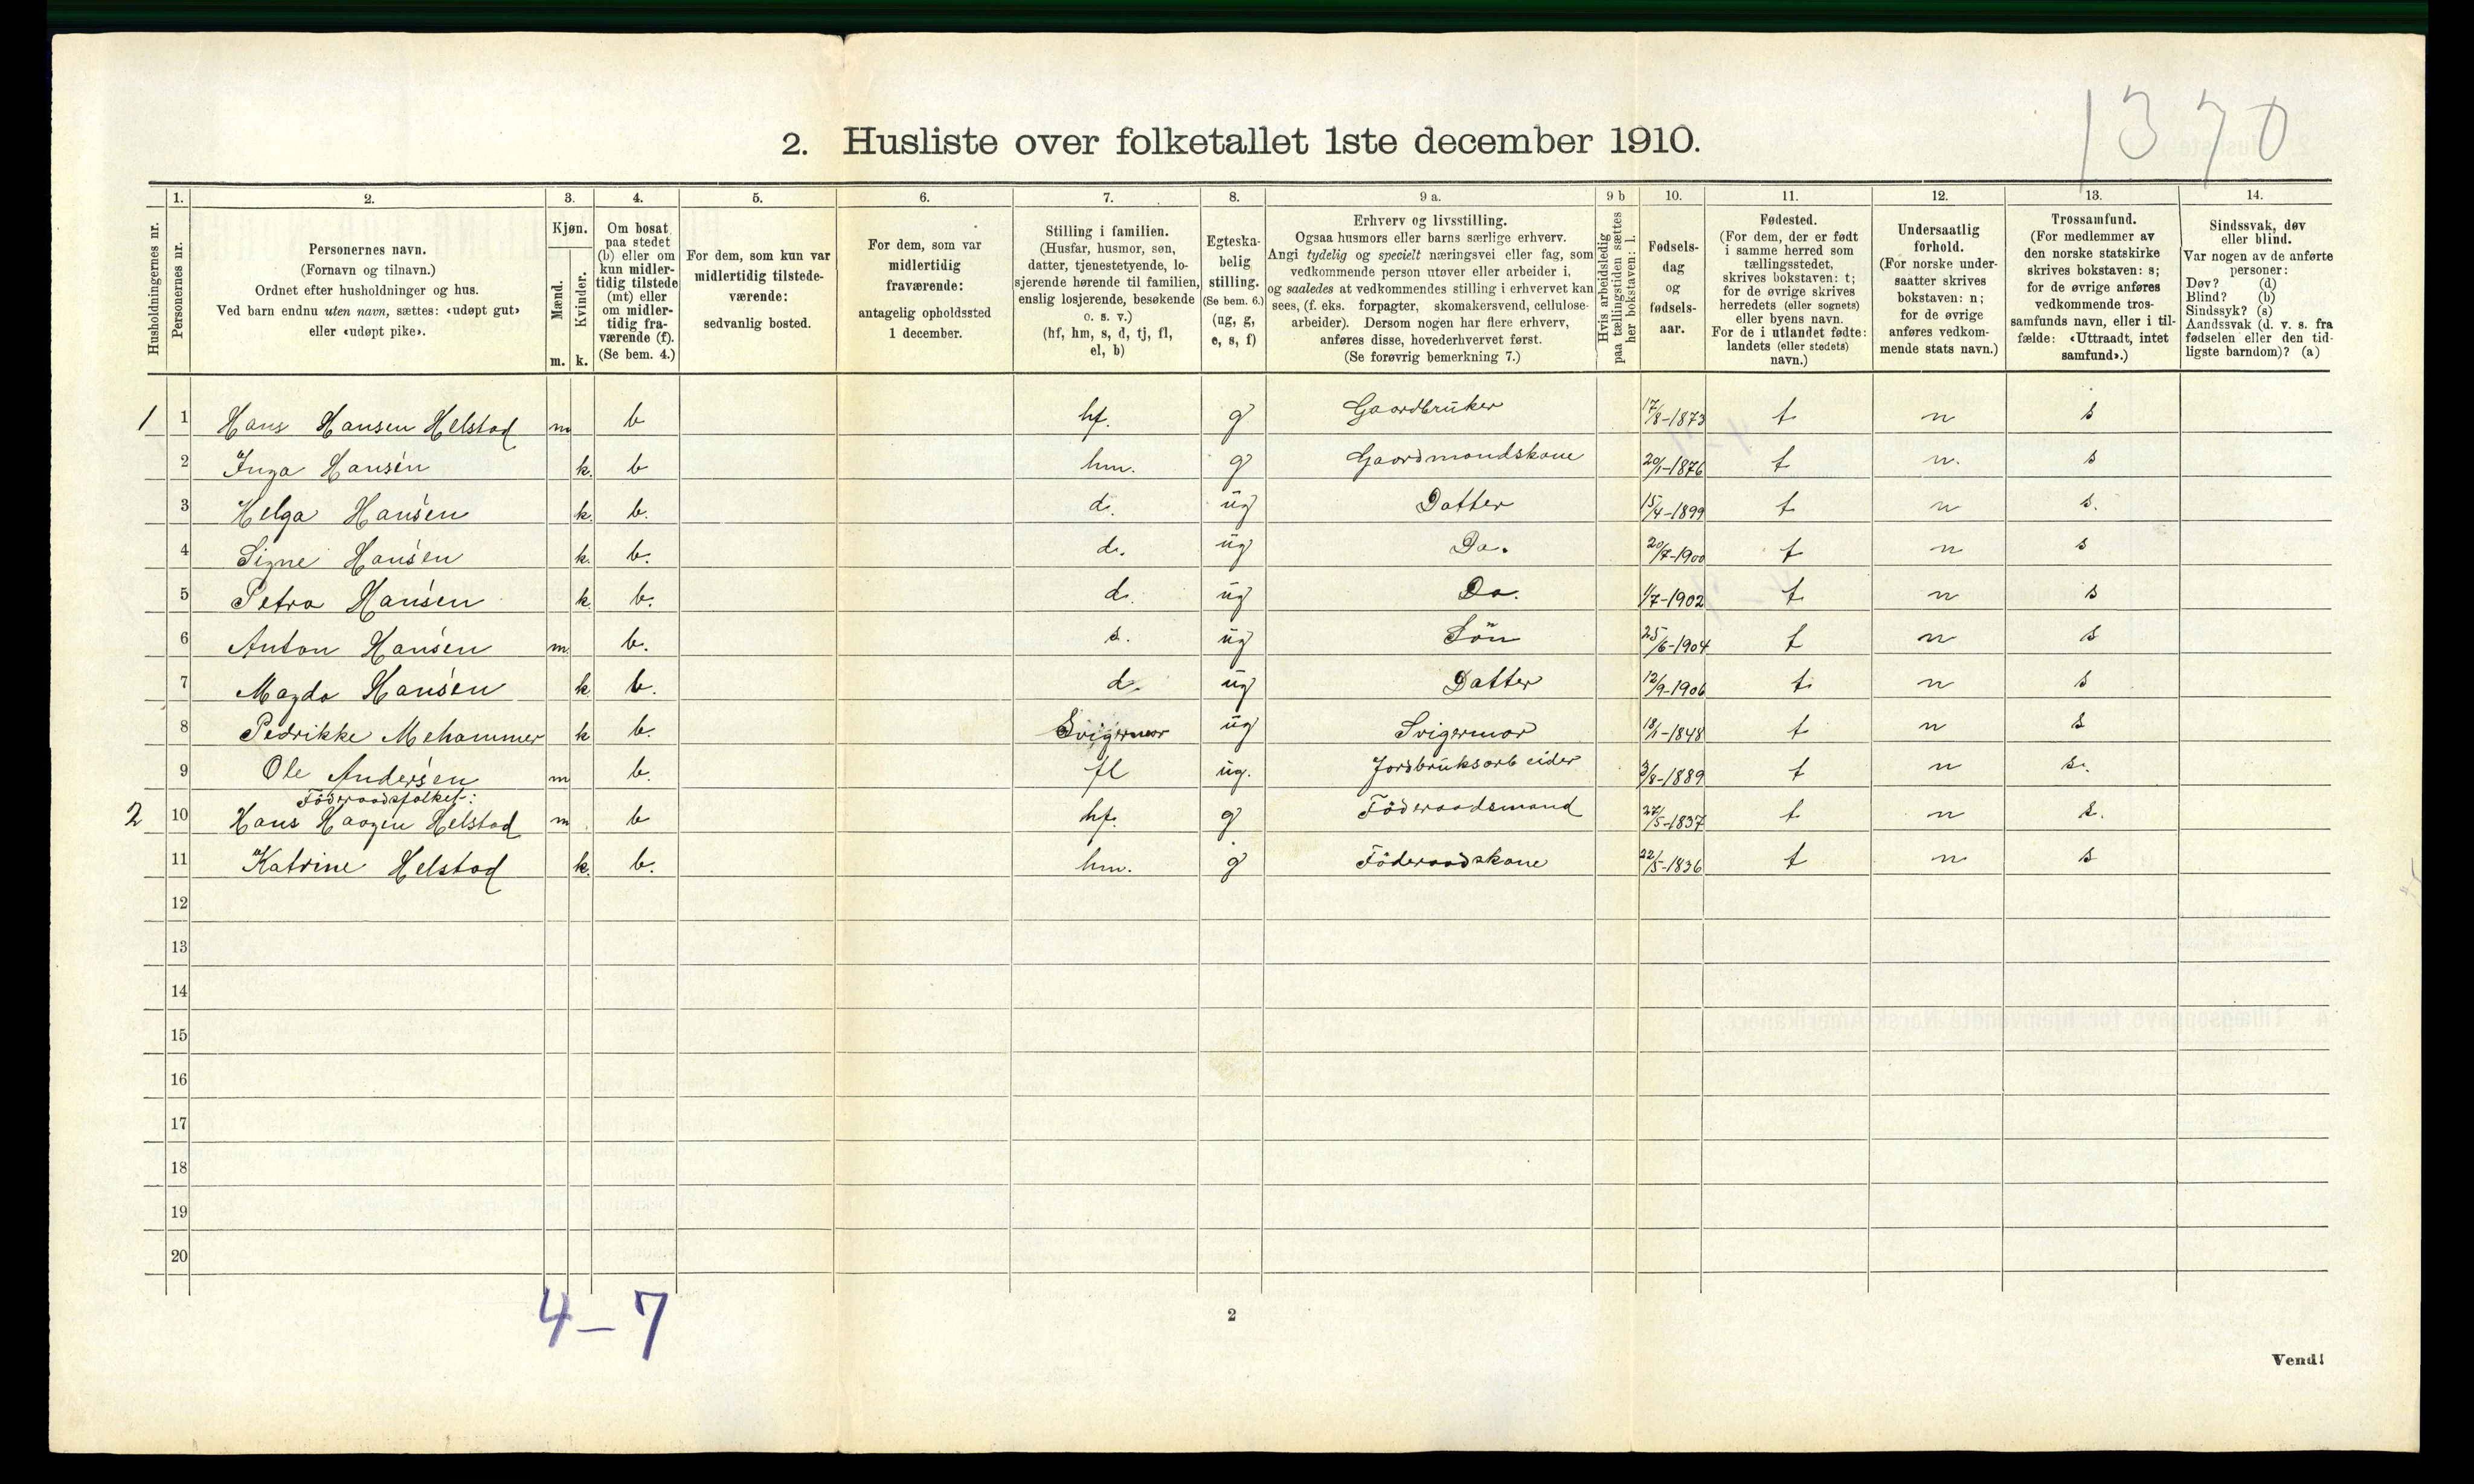 1370
2. Husliste over folketallet 1ste december 1910.
Husholdningernes nr.
1.
Personernes nr.
2.
Personernes navn.
(Fornavn og tilnavn.)
Ordnet efter husholdninger og hus.
Ved barn endnu uten navn, sættes: «udøpt gut»
eller «udøpt pike».
3.
Kjøn.
Mænd.
Kvinder.
m. k.
4.
Om bosat
paa stedet
(b) eller om
kun midler-
tidig tilstede
(mt) eller
om midler-
tidig fra-
værende (f).
(Se bem. 4.)
5.
For dem, som kun var
midlertidig tilstede-
værende:
sedvanlig bosted.
6.
For dem, som var
midlertidig
fraværende:
antagelig opholdssted
1 december.
7.
Stilling i familien.
(Husfar, husmor, søn,
datter, tjenestetyende, lo-
sjerende hørende til familien,
enslig losjerende, besøkende
o. s. v.)
(hf, hm, s, d, tj, fl,
el, b)
8.
Egteska-
belig
stilling.
(Se bem. 6.)
(ug, g,
e, s, f)
9 a.
Erhverv og livsstilling.
Ogsaa husmors eller barns særlige erhverv.
Angi tydelig og specielt næringsvei eller fag, som
vedkommende person utøver eller arbeider i,
og saaledes at vedkommendes stilling i erhvervet kan
sees, (f. eks. forpagter, skomakersvend, cellulose-
arbeider). Dersom nogen har flere erhverv,
anføres disse, hovederhvervet først.
(Se forøvrig bemerkning 7.)
9 b
Hvis arbeidsledig
paa tællingstiden sættes
her bokstaven: l.
10.
Fødsels-
dag
og
fødsels-
aar.
11.
Fødested.
(For dem, der er født
i samme herred som
tællingsstedet,
skrives bokstaven: t;
for de øvrige skrives
herredets (eller sognets)
eller byens navn.
For de i utlandet fødte:
landets (eller stedets)
navn.)
12.
Undersaatlig
forhold.
(For norske under-
saatter skrives
bokstaven: n;
for de øvrige
anføres vedkom-
mende stats navn.)
13.
Trossamfund.
(For medlemmer av
den norske statskirke
skrives bokstaven: s;
for de øvrige anføres
vedkommende tros-
samfunds navn, eller i til-
fælde: «Uttraadt, intet
samfund».)
14.
Sindssvak, døv
eller blind.
Var nogen av de anførte
personer:
Døv? (d)
Blind? (b)
Sindssyk? (s)
Aandssvak (d. v. s. fra
fødselen eller den tid-
ligste barndom)? (a)
1 1 Hans Hansen Helstad m b hf. g Gaardbruker 17/8-1873 t n s
2 Inga Hansen k. b hm. g Gaardmandskone 20/1-1876 t n. s
3 Helga Hansen k. b. d. ug Datter 15/4-1899 t n s.
4 Signe Hansen k. b. d. ug Do. 20/7-1900 t n s
5 Petra Hansen k. b. d. ug Do. 1/7-1902 t n s
6 Anton Hansen m. b. s. ug Sön 25/6-1904 t n s
7 Magda Hansen k b. d. ug Datter 12/9-1906 t n s
8 Pedrikke Mehammer k b. Svigermor ug Svigermor 18/1-1848 t n s
9 Ole Andersen m b. fl ug. Jordbruksarbeider 3/8-1889 t n s.
Föderaadsfolket:
2 10 Hans Haagen Helstad m b hf. g Föderaadsmand 27/5-1837 t n s.
11 Katrine Helstad k. b. hm. g Föderaadskone 22/5-1836 t n s
12
13
14
15
16
17
18
19
20
4-7
2
Vend!